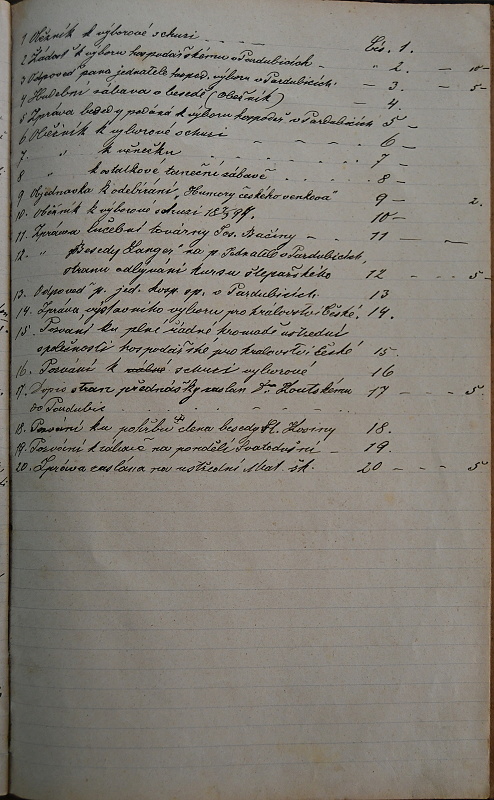 1 Oběžník k výborové schůzi . . . . Čís. 1.
2 Žádost k výboru hospodářskému v Pardubicích - " 2. - - 10 -
3 Odpověď pana jednatele hosp. výboru v Pardubicích. - 3. - - 5 -
4 Hudební zábava v besedě (Oběžník) - 4.
5 Zpráva besedy podaná k výboru hospodář. v Pardubicích 5 -
6 Oběžník k výborové schůzi . . . . 6 -
7. " k věnečku . . . . 7 -
8 " k ostatkové taneční zábavě . . . 8 -
9 Objednávka k odebírání „Humory českého venkova" 9 - - 2.
10. Oběžník k výborové schůzi 10 -
11. Zpráva lučební továrny Jos. 11 - -
12. " Besedy na p. Jednatele v Pardubicích,
stranu odbývání kursu štěpařského 12 - - 5 -
13. Odpověď p. jed. hosp. sp. v Pardubicích. 13
14. Zpráva výstavního výboru pro království České. 14.
15. Pozvání ku plné řádné hromadě ústřední
společnosti hospodářské pro království České 15.
16. Pozvání k schůzi výborové 16
17. Dopis stran přednášky zaslán Dru. 17 - - - 5.
do Pardubic . . . .
18. Pozvání ku pohřbu člena besedy 18.
19. Pozvání k zábavě na pondělí Svatodušní - 19.
20. Zpráva zaslána na ústřední Mat. šk. 20 - - - 5